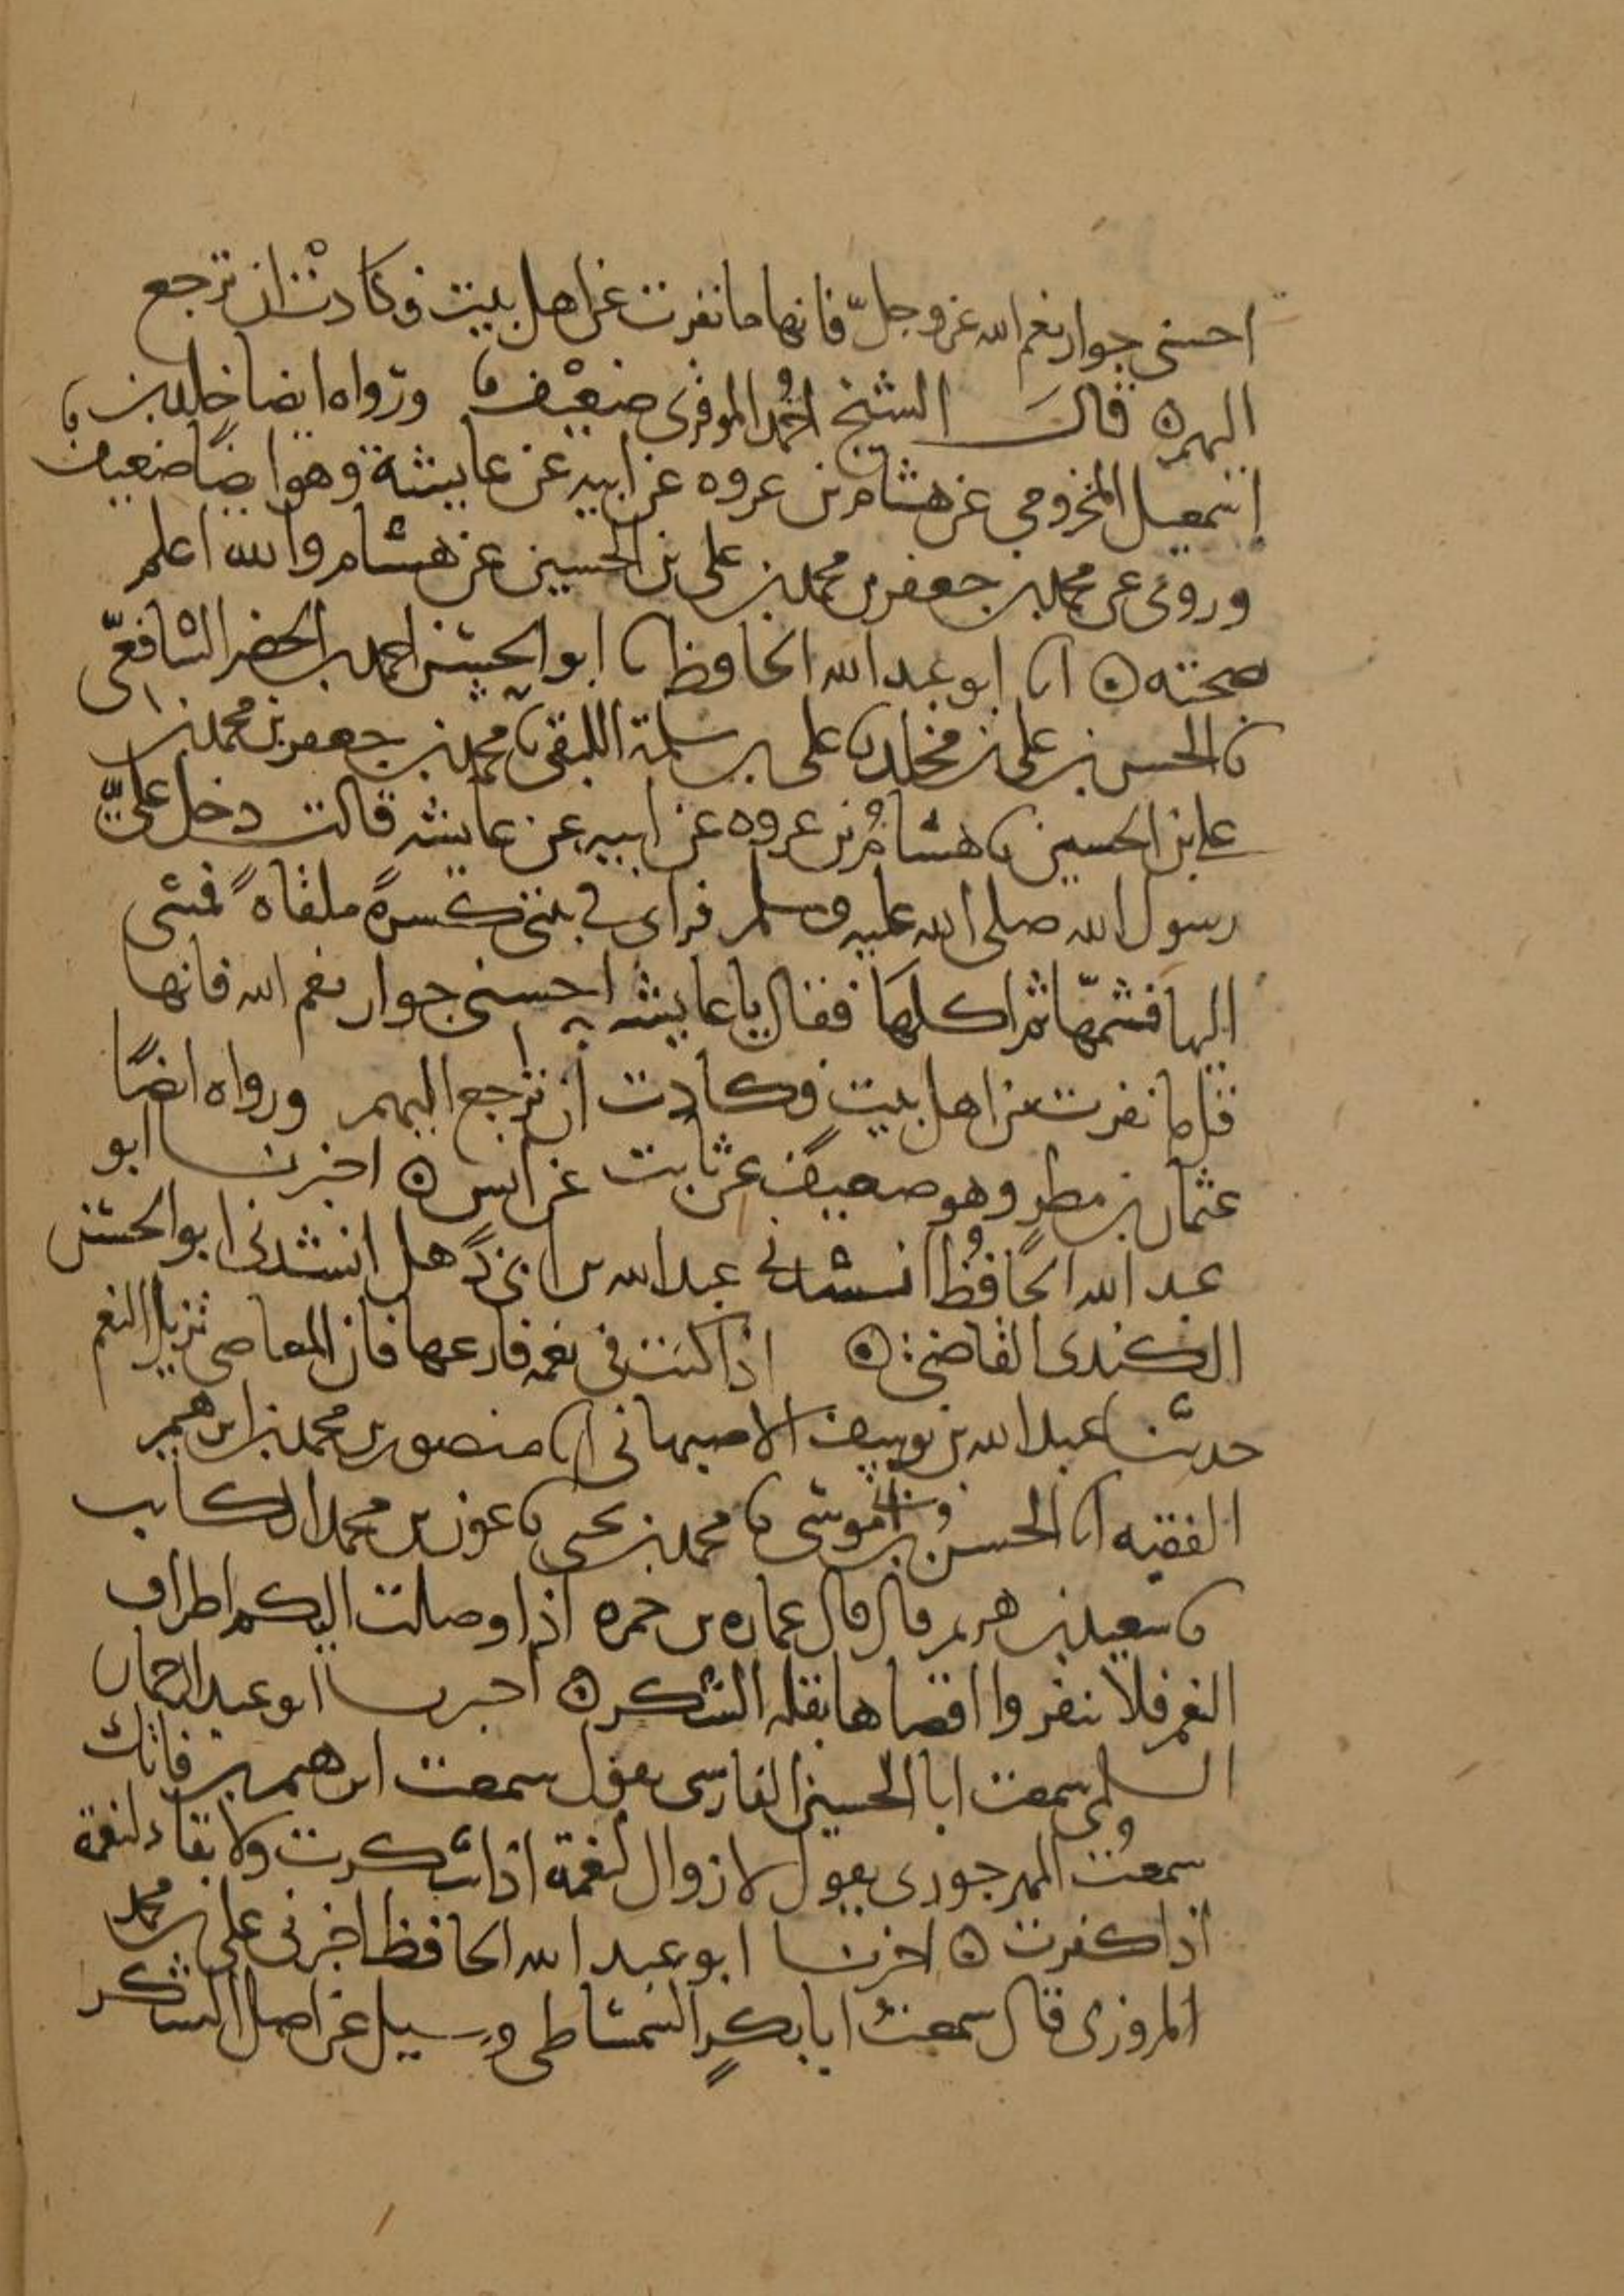 احسنى جوار نعم الله عز وجلّ فانها ما نفرت عن اهل بيت فكادت ان ترجع
اليهم ۞ قال الشيخ احمد الموقرى ضعيف ورواه ايضا خالد بن
اسمعيل المخزومى عن هشام بن عروه عن ابيه عن عايشة وهو ايضًا ضعيف
وروى عن محمد بن جعفر بن محمد بن على بن الحسين عن هشام والله اعلم
صحته ۞ انا ابو عبد الله الحافظ نا ابو الحسن احمد بن الخضر الشافعى
نا الحسن بن على بن مخلد نا على بن سلمة اللبقى نا محمد بن جعفر بن محمد بن
على بن الحسين نا هشامُ بن عروه عن ابيه عن عايشه قالت دخل علىّ
رسول الله صلى الله عليه وسلم فراى فى بيتى كسرةً ملقاهً فمشى
اليها فشمّها ثم اكلها فقال يا عايشه احسنى جوار نعم الله فانها
قل ما نفرت عن اهل بيت فكادت ان ترجع اليهم ورواه ايضًا
عثمان بن مطرٍ وهو ضعيف عن ثابت عن انس ۞ اخبرنا ابو
عبد الله الحافظُ انشدنى عبد الله بن ابى ذهل انشدنى ابو الحسن
الكندى القاضى ۞ اذا كنت فى نعمه فارعها فان المعاصى تزيل النعم
حدثنا عبد الله بن يوسف الاصبهانى انا منصور بن محمد بن ابرهيم
الفقيه انا الحسنُ بن موسى نا محمد بن يحيى نا عون بن محمد الكاتب
نا سعيد بن هريم قال قال عماره بن حمزه اذا وصلت اليكم اطراف
النعم فلا تنفروا اقصاها بقله الشكر ۞ اخبرنا ابو عبد الرحمان
السلمى سمعت ابا الحسين الفارسى يقول سمعت ابرهيم بن فاتك
سمعتُ النهرجورى يقول لا زوال لنعمة اذا شكرت ولا بقاء لنعمة
اذا كفرت ۞ اخبرنا ابو عبد الله الحافظ اخبرنى على بن محمد
المروزى قال سمعتُ ابا بكرٍ الشمشاطى وسيل عن اصل الشكر